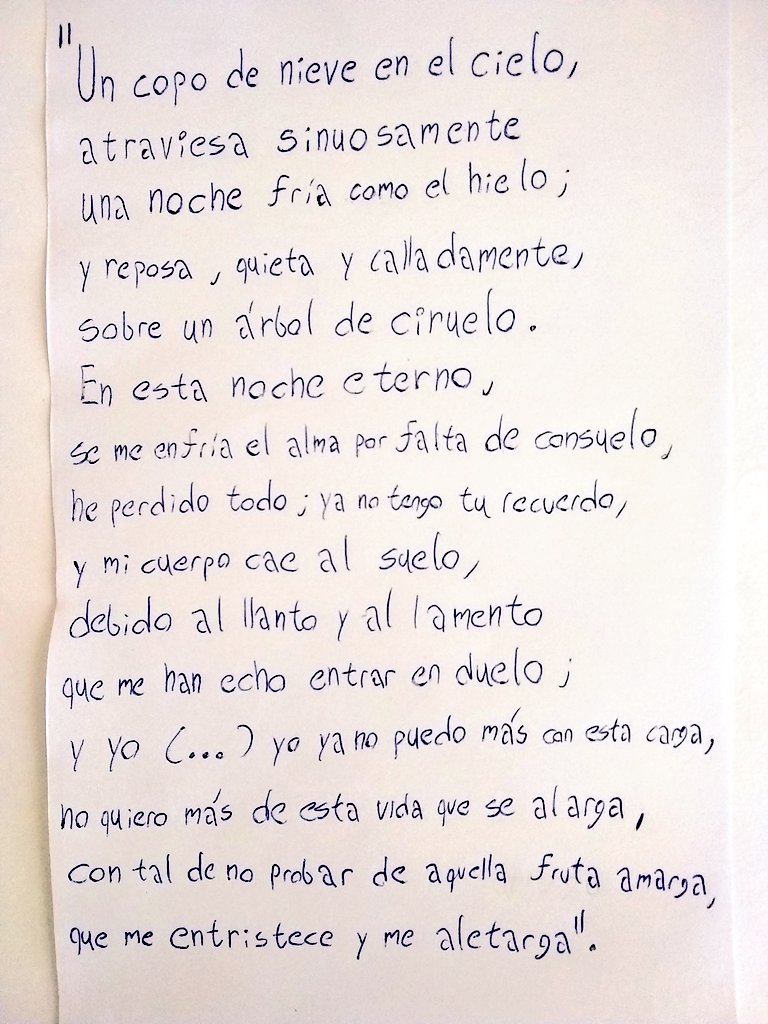 "Un copo de nieve en el cielo,
atraviesa sinuosamente
una noche fría como el hielo;
y reposa, quieta y calladamente,
sobre un árbol de ciruelo.
En esta noche eterno,
se me enfría el alma por falta de consuelo,
he perdido todo; ya no tengo tu recuerdo,
y mi cuerpo cae al suelo,
debido al llanto y al lamento
que me han echo entrar en duelo;
y yo (...) yo ya no puedo más con esta carga,
no quiero más de esta vida que se alarga,
con tal de no probar de aquella fruta amarga,
que me entristece y me aletarga".